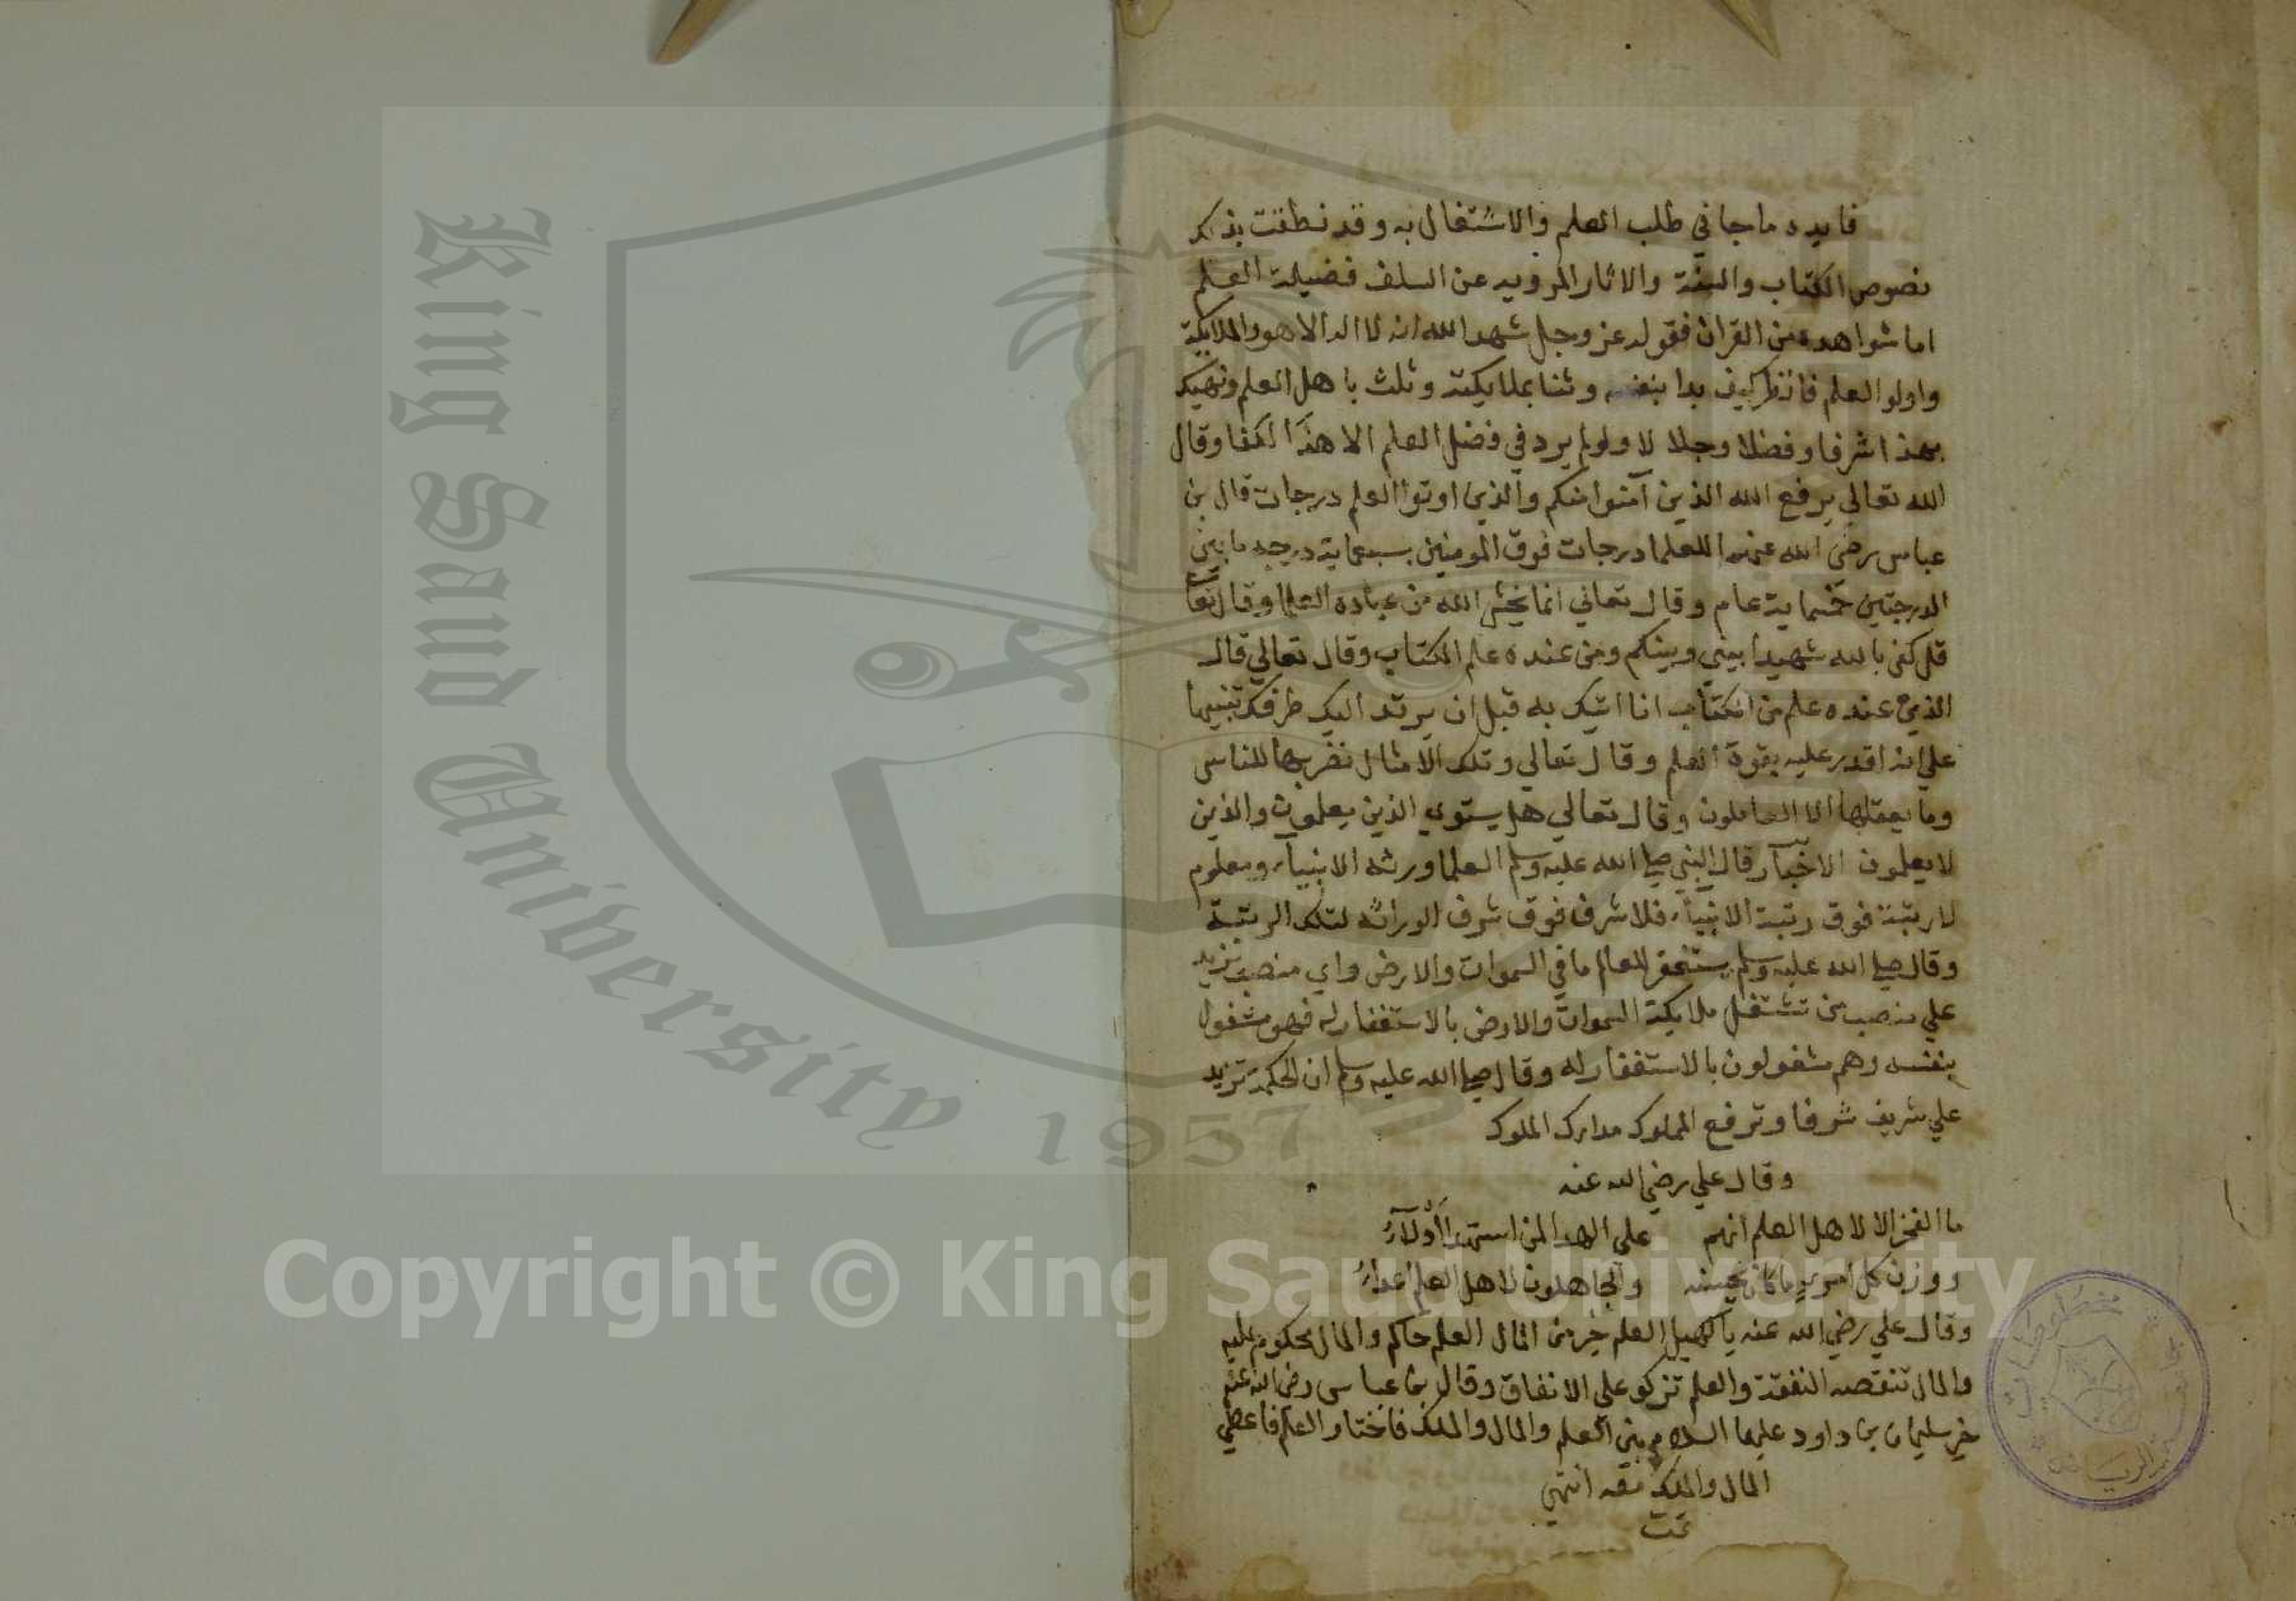 فايده ما جا في طلب العلم والاشتغال به وقد نطقت بذكر
نصوص الكتاب والسنة والاثار المرويه عن السلف فضيلة العلم
اما شواهده من القران فقوله عز وجل شهد الله انه لا اله الا هو والملايكة
واولو العلم فانظر كيف بدا بنفسه وثنا بملايكته وثلث باهل العلم ونهيك
بهذا شرفا وفضلا وجلالا ولو لم يرد في فضل العلم الا هذا لكفا وقال
الله تعالي يرفع الله الذين آمنوا منكم والذين اوتوا العلم درجات قال بن
عباس رضي الله عنه للعلما درجات فوق المومنين بسبعماية درجه ما بين
الدرجتين خمسماية عام وقال تعالي انما يخشي الله من عباده العلما وقال تعا
قل كفى بالله شهيدا بيني وبينكم ومن عنده علم الكتاب وقال تعالي قال
الذي عنده علم من الكتاب انا اتيك به قبل ان يرتد اليك طرفك تنبيها
علي انه اقدر عليه بقوة العلم وقال تعالي وتلك الامثال نضربها للناس
وما يعقلها الا العاملون وقال تعالي هل يستوي الذين يعلمون والذين
لا يعلمون الاخبار قال النبي صلي الله عليه وسلم العلما ورثه الانبياء ومعلوم
لا رتبة فوق رتبة الانبياء فلا شرف فوق شرف الوراثه لتلك الرتبة
وقال صلي الله عليه وسلم يستغفر للعالم ما في السموات والارض واي منصب تزيد
علي منصب من تشتغل ملايكة السموات والارض بالاستغفار له فهو مشغول
بنفسه وهم مشغولون بالاستغفار له وقال صلي الله عليه وسلم ان الحكمة تزيد
علي شريف شرفا وترفع المملوك مدارك الملوك
وقال علي رضي الله عنه
ما الفخر الا لاهل العلم انهم علي الهدا لمن استهدا أدلآءُ
ووزن كل امرىٍ ما كان يحسنه والجاهلون لاهل العلم اعداءُ
وقال علي رضي الله عنه يا كميل العلم خير من المال العلم حاكم والمال محكوم عليه
والمال تنقصه النفقة والعلم تزكو علي الانفاق وقال بن عباس رضي الله عنه
خير سليمان بن داود عليهما السلام بين العلم والمال والملك فاختار العلم فاعطي
المال والملك معه انتهي
تمت
King Saud University
1957
Copyright © King Saud University